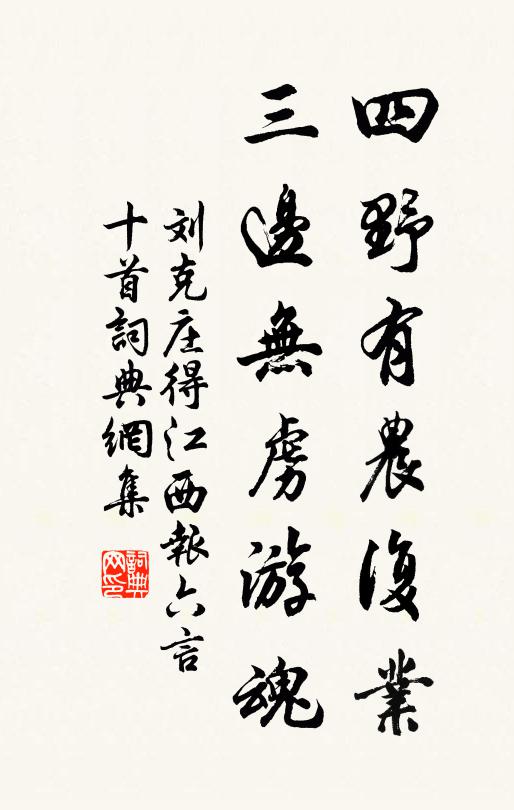 四野有農復業
三邊無虜游魂
刘克庄得江西報六言
十首詞典網集
詞典网印